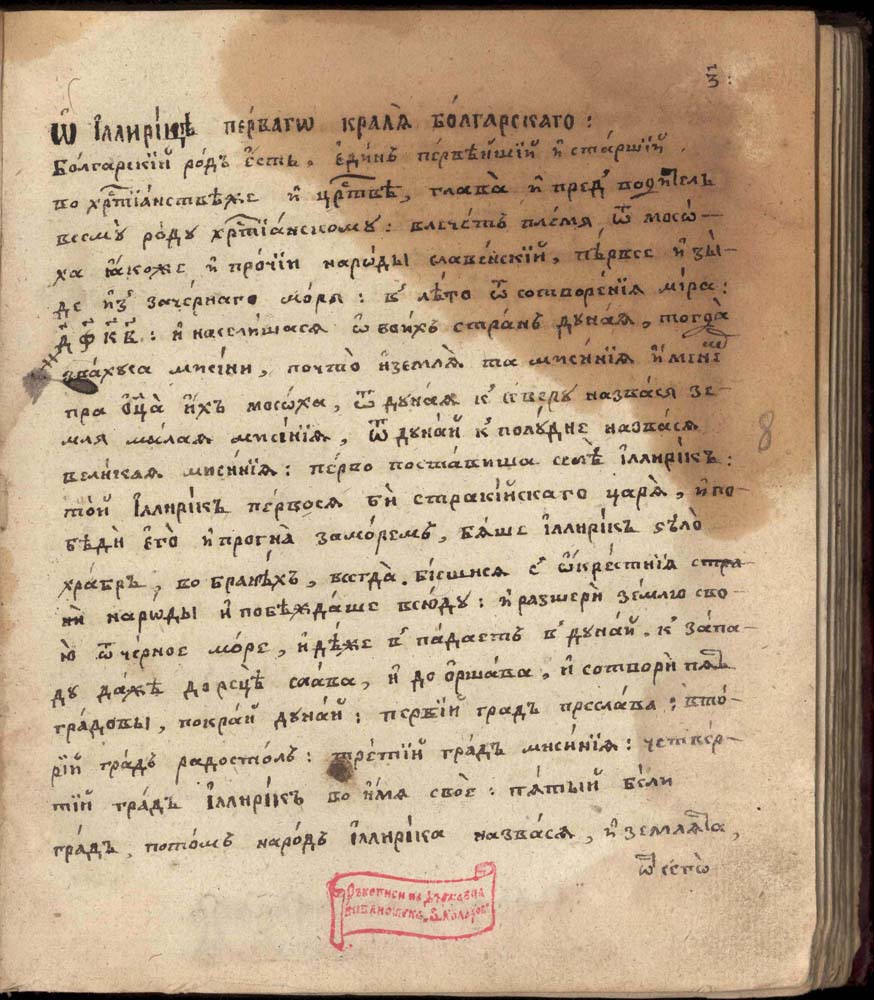 з҃:
Ѡ҆ І҆ллирі́цѣ пе́рвагѡ кралѧ̀ бо́лгарскаго:
Бо́лгарскїй ро́дъ є҆́сть. є҆ди́нъ пе́рвѣншїй и҆ ста́ршїй
во хрⷭ҇тїа́нствѣже и҆ црⷭ҇твѣ, глава̀ и҆ пред̾ води́тель
всемꙋ̀ ро́дꙋ хрⷭ҇тїа́нскомꙋ: влече́тъ пле́мѧ ѿ мосо́-
ха ꙗ҆коже и҆ про́чїи наро́ды славе́нскїй, пе́рвее и҆зы́-
де и҆з̾ заче́рнаго мо́рѧ: в̾ лѣ́то ѿ сотворе́нїѧ мі́ра:
д҃ф҃к҃в҃: и҆ насели́шасѧ ѡ҆ боихъ стра́нъ дꙋ́наѧ, тогда̀
зва́хꙋсѧ миси́ни, почто̀ и҆землѧ̀ та миси́нїѧ и҆мене
пра ѻ҆ц҃а̀ и҆́хъ мосо́ха, ѿ дꙋ́наѧ к̾ сѣверꙋ назва́сѧ зе-
млѧ ма́лаѧ миси́нїѧ, ѿ дꙋ́най к̾ полꙋ́дне назва́сѧ
вели́каѧ миси́нїѧ: пе́рво поста́виша себѣ̀ і҆ллирі́къ:
то́й І҆ллирі́къ пе́рвосѧ бѝ стракі́йскаго царѧ̀, и҆по-
бѣдѝ є҆го̀ и҆прогна̀ замо́ремъ, бѧ́ше і҆ллирі́къ ѕѣло̀
хра́бръ, во бране́хъ, всегда̀. бїещисѧ с̾ ѻ҆кре́стнїѧ стра
нѝ наро́ды и҆ побѣжда́ше всю́дꙋ: и҆ разширѝ зе́млю сво-
ю̀ ѿ че́рное мо́ре, и҆дѣ́же в̾ па́даетъ в̾ дꙋ́най. к̾ за́па-
дꙋ да́жѐ до рецѣ̀ са́ва, и҆ до ѻ҆ршава, и҆ сотворѝ пѧⷮ
гра́довы, покра́й дꙋ́най: пе́рвїй гра́дъ пресла́ва: вто́-
рїй гра́дъ ра́достолъ: тре́тїй гра́дъ миси́нїѧ: четве́р-
тїй гра́дъ І҆ллирі́къ во и҆́мѧ своѐ: пѧ́тый бѣ́ли
гра́дъ, пото́мъ наро́дъ і҆ллирі́ка назва́сѧ, и҆ землѧⷮа,
ѿ сегѡ̀
8
Ръкописи на Държавна
библиотека „В. Коларов"